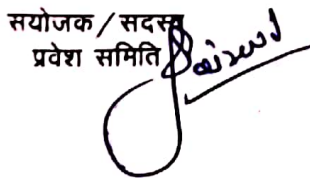 सयोजक / सदस्य
प्रवेश समिति